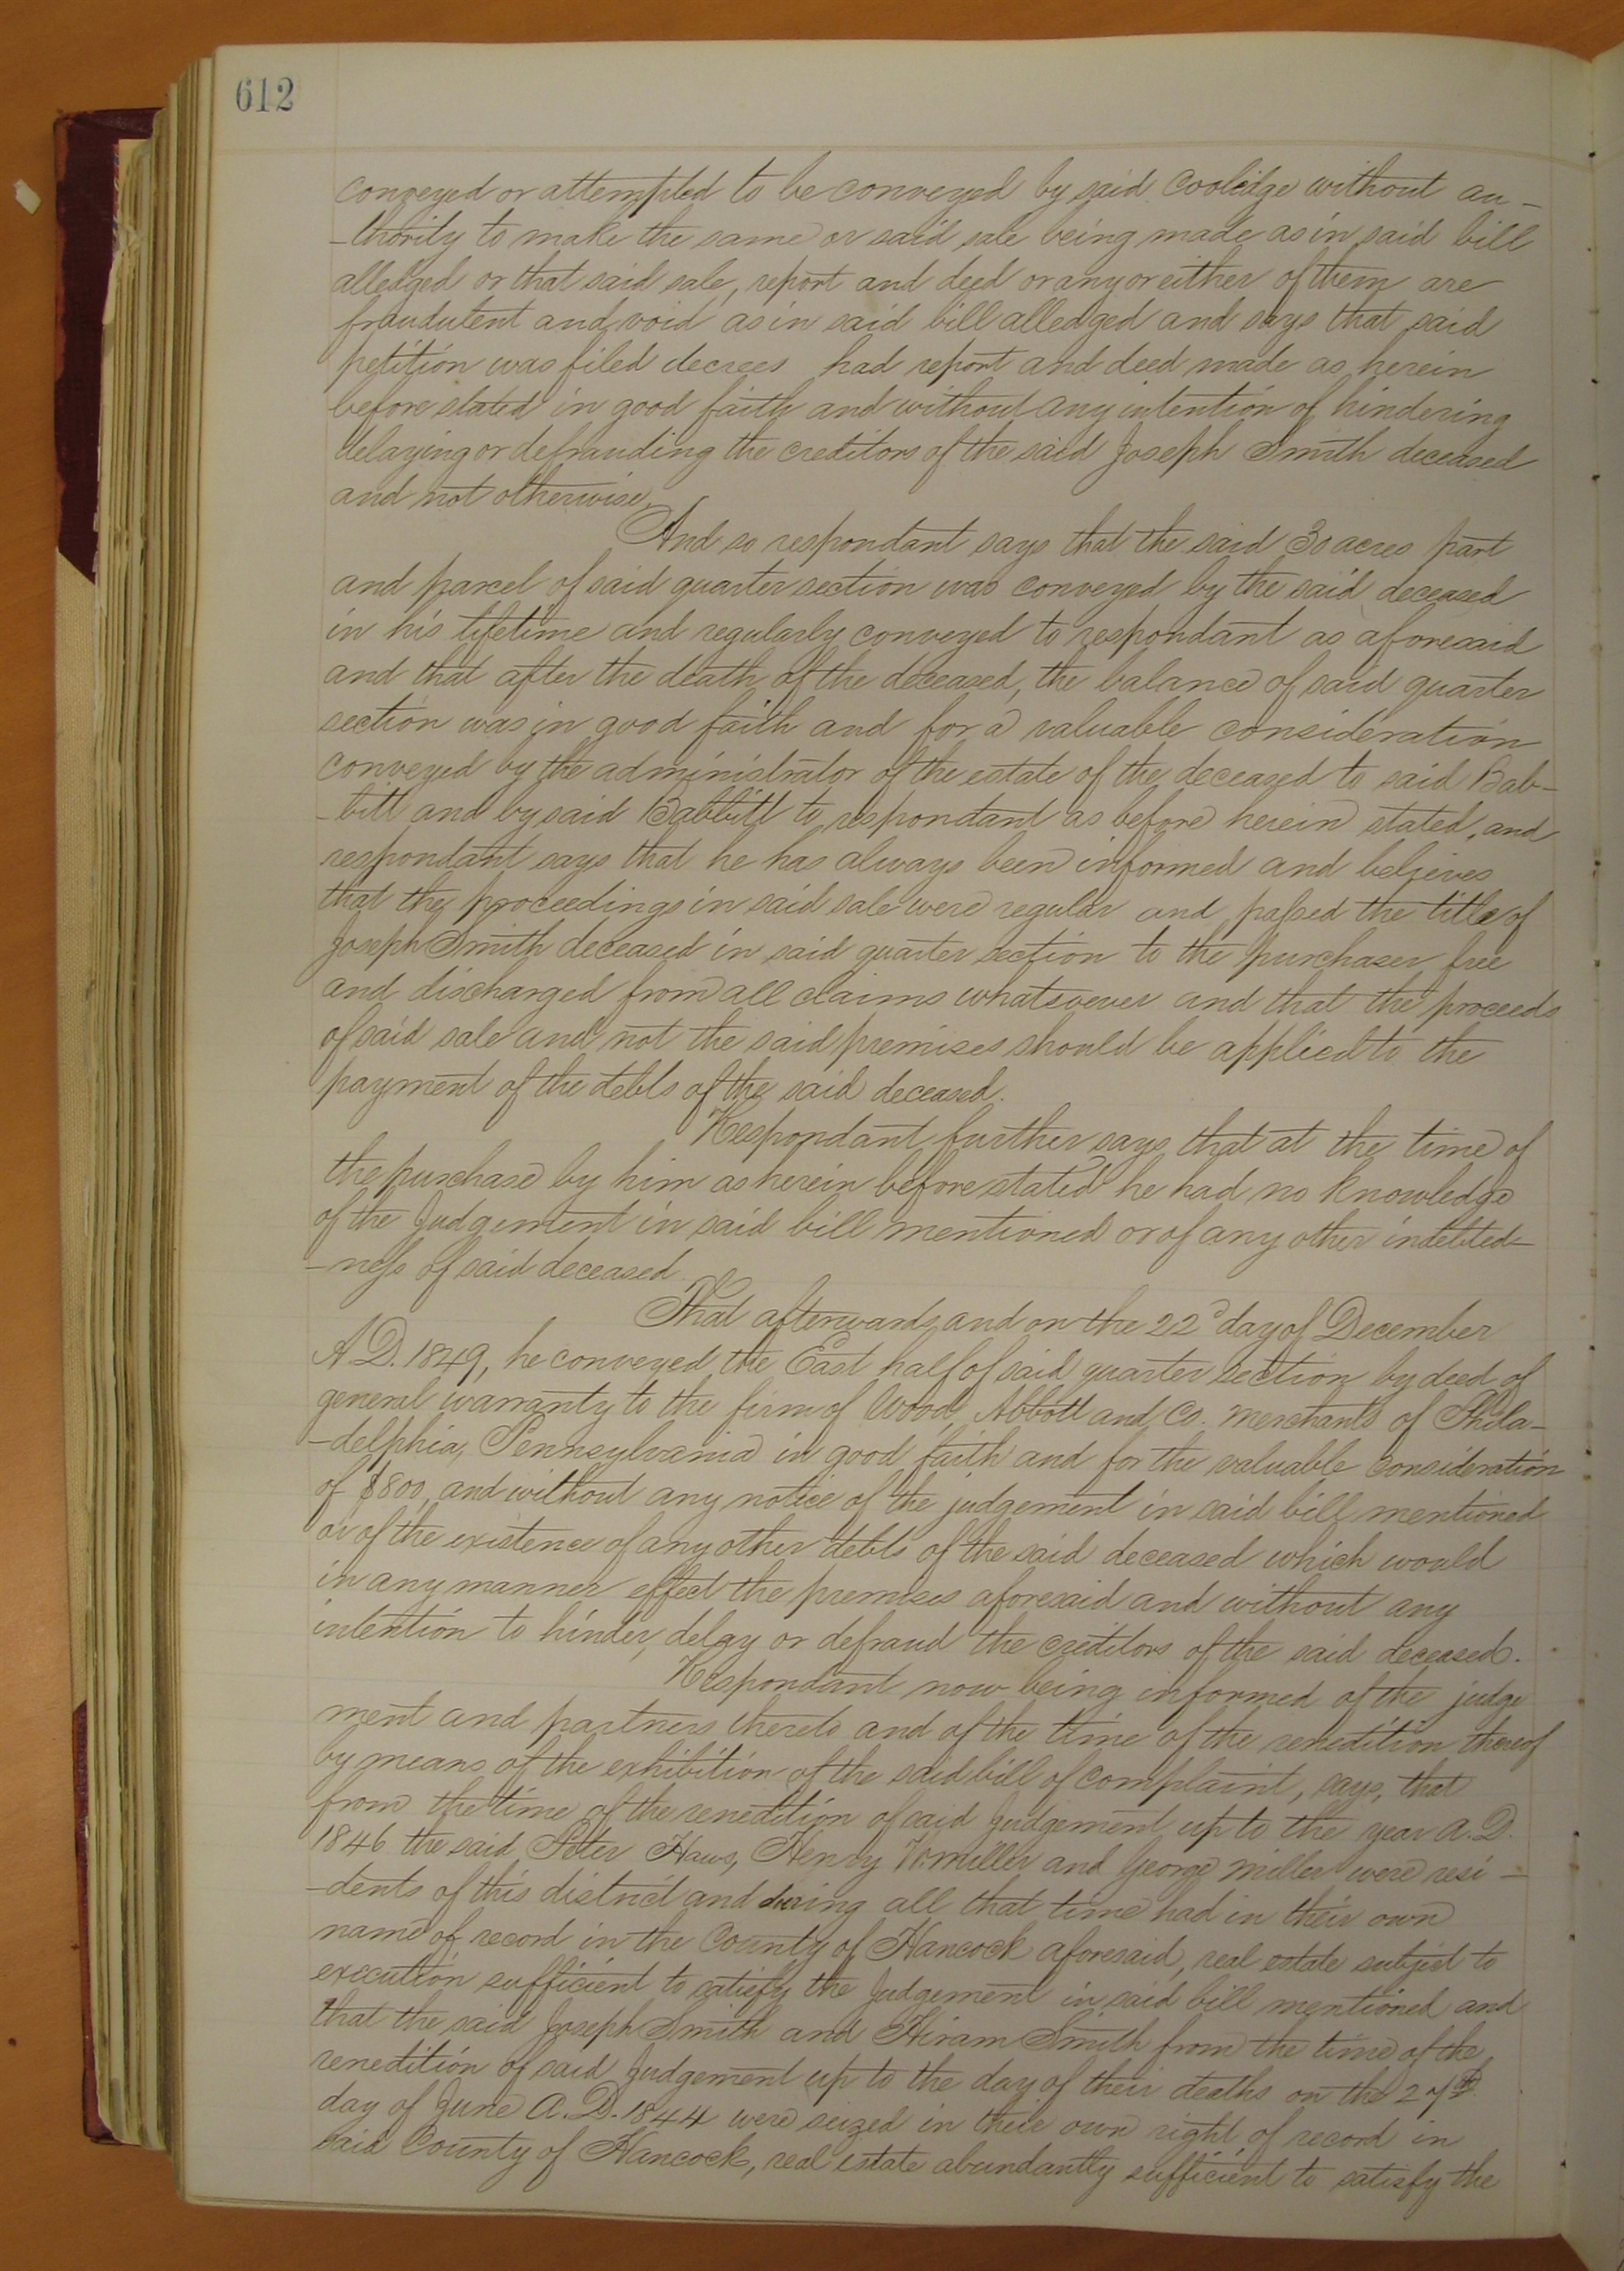 612
conveyed or attempted to be conveyed by said Coolidge without au-
-thority to make the same or said sale being made as in said bill
alledged or that said sale, report and deed or any or either of them are
fraudulent and void as in said bill alledged and says that said
petition was filed decrees had report and deed made as herein
before stated in good faith and without any intention of hindering
delaying or defrauding the creditors of the said Joseph Smith deceased
and not otherwise.
And so respondant says that the said 30 acres part
and parcel of said quarter section was conveyed by the said deceased
in his lifetime and regularly conveyed to respondant as aforesaid
and that after the death of the deceased, the balance of said quarter
section was in good faith and for a valuable consideration
conveyed by the administrator of the estate of the deceased to said Bab-
-bitt and by said Babbitt to respondant as before herein stated, and
respondant says that he has always been informed and believes
that the proceedings in said sale were regular and passed the title of
Joseph Smith deceased in said quarter section to the purchaser free
and discharged from all claims whatsoever and that the proceeds
of said sale and not the said premises should be applied to the
payment of the debts of the said deceased.
Respondant further says that at the time of
the purchase by him as herein before stated he had no knowledge
of the Judgement in said bill mentioned or of any other indebted-
-ness of said deceased.
That afterwards and on the 22d day of December
A.D. 1849, he conveyed the East half of said quarter section by deed of
general warranty to the firm of Wood, Abbott and Co. merchants of Phila-
-delphia, Pennsylvania in good faith and for the valuable consideration
of $800, and without any notice of the judgement in said bill mentioned
or of the existence of any other debts of the said deceased which would
in any manner effect the premises aforesaid and without any
intention to hinder, delay or defraud the creditors of the said deceased.
Respondant now being informed of the judge
ment and partners thereto and of the time of the renedition thereof
by means of the exhibition of the said bill of complaint, says, that
from the time of the renedition of said Judgement up to the year A.D.
1846 the said Peter Haws, Henry W. Miller and George Miller were resi-
-dents of this district and during all that time had in their own
name of record in the County of Hancock aforesaid, real estate subject to
execution sufficient to satisfy the Judgement in said bill mentioned and
that the said Joseph Smith and Hiram Smith from the time of the
renedition of said Judgement up to the day of their deaths on the 27th
day of June A.D. 1844 were seized in their own right of record in
said County of Hancock, real estate abundantly sufficient to satisfy the